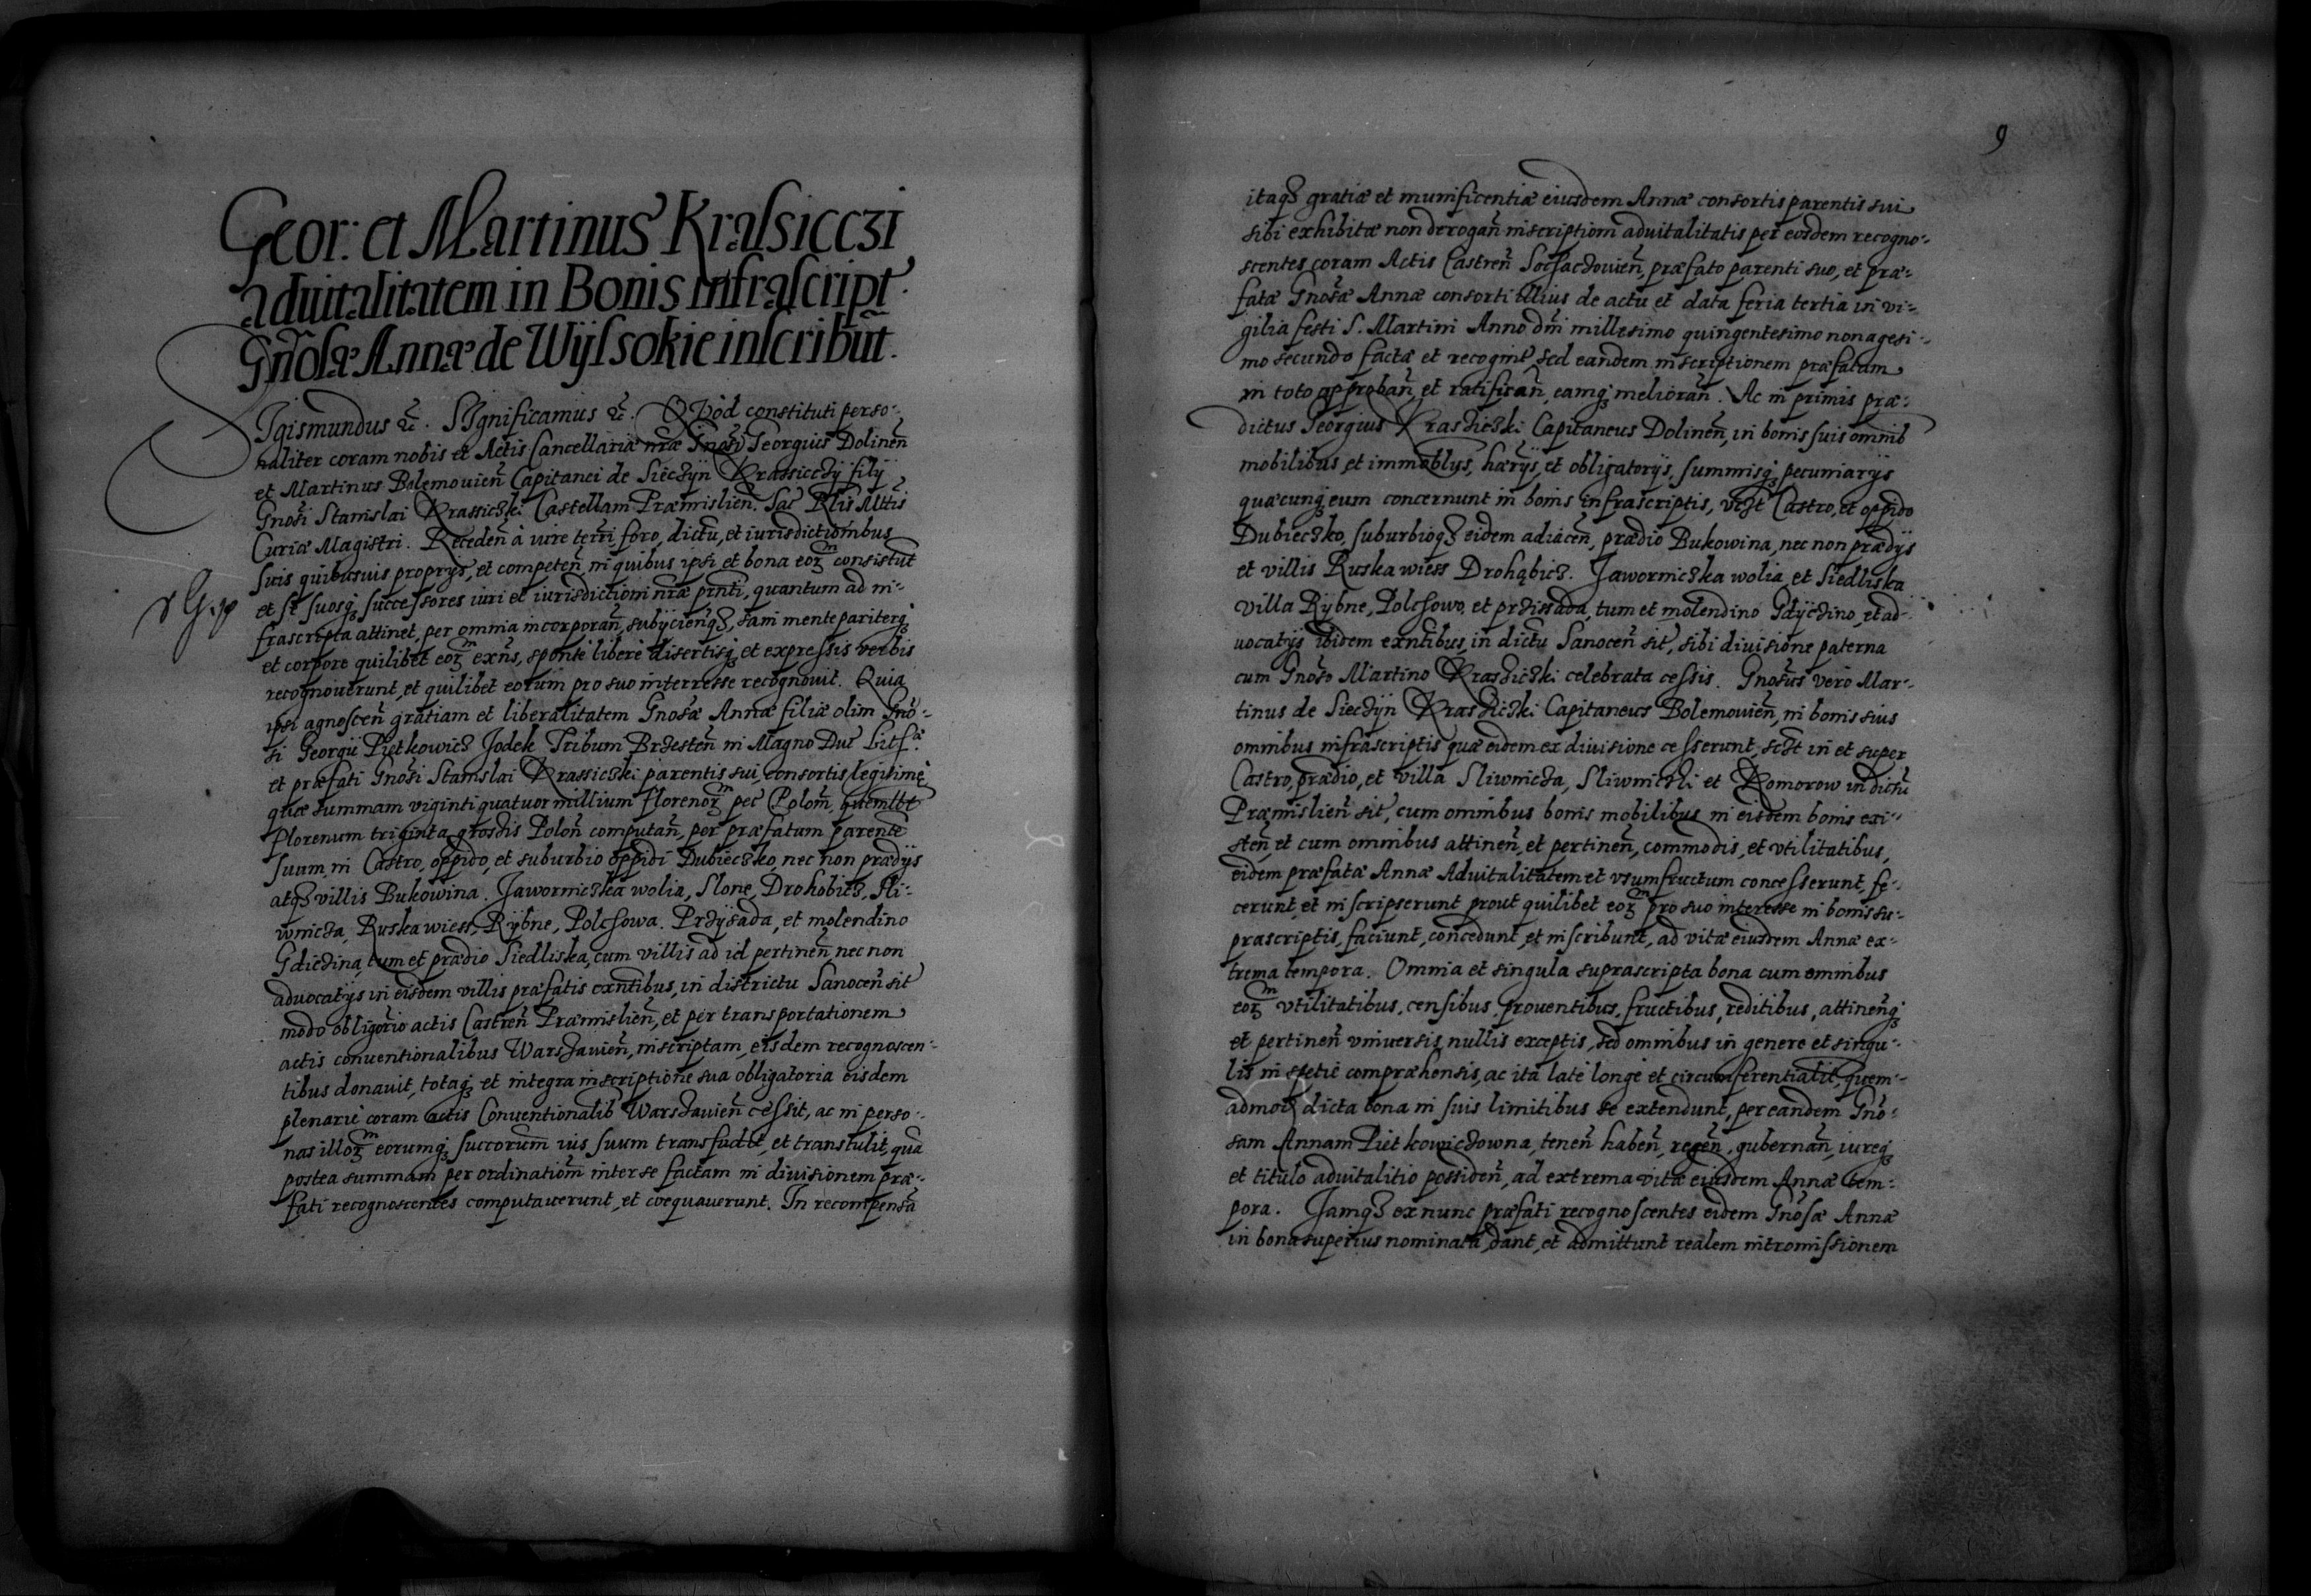 Geor: et Martinus Krassicczi
aduitalitatem in Bonis infrascript.
Gñosæ Annæ de Wÿssokie inscribũt.
SIgismundus &c. SIgnificamus &c. QVod constituti perso-
naliter coram nobis et Actis Cancellariæ nr̃æ Gnosi Georgius Dolineñ
et Martinus Bolemouieñ Capitanei de Siecżÿn Krassicczÿ filÿ
Gnosi Stanislai Krassiczki Castellani Præmislieñ. Sac
Curiæ Magistri. Recedeñ à iure terri, foro, dictu, et iurisdictionibus
suis quibusuis proprÿs, et competeñ, in quibus ipsi et bona eoꝝ consistũt
et se suosqꝫ successores iuri et iurisdictioni nr̃æ pñti, quantum ad in-
frascripta attinet, per omnia incorporañ, subÿcieñqꝫ, sani mente pariterqꝫ
et corpore quilibet eoꝝ exñs, sponte libere disertisqꝫ et expressis verbis
recognouerunt, et quilibet eorum pro suo interresse recognouit. Quia
ipsi agnosceñ gratiam et liberalitatem Gnosæ Annæ filiæ olim Gno-
si Georgii Pietkowicz Jodek Tribuni Brzesteñ in Magno Duc
et præfati Gnosi Stanislai Krassiczki parentis sui, consortis legitimę
quæ summam viginti quatuor millium florenoꝝ pec Poloñ, quemlbt
Florenum triginta grossis Poloñ computañ, per præfatum parentē
suum, in Castro, oppido, et suburbio oppidi Dubieczko, nec non prædÿs
atqꝫ villis Bukowina. Jaworniczka wolia, Slone, Drohobicz, Sli-
wnicza, Ruska wiess, Rÿbne, Polchowa. Przÿsada, et molendino
Gdiczina, tum et prædio Siedliska, cum villis ad id pertineñ, nec non
aduocatÿs in eisdem villis præfatis exñtibus, in districtu Sanoceñ sit
modo obligorio actis Castreñ Præmislieñ, et per transportationem
actis conuentionalibus Warszauieñ, inscriptam, eisdem recognoscen-
tibus donauit, totaqꝫ et integra inscriptione sua obligatoria eisdem
plenariè coram actis Conuentionalib Warszauieñ cessit, ac in perso-
nas illoꝝ eorumqꝫ succorum ius suum transfudit, et transtulit, qua
postea summam per ordinatioñ inter se factam in diuisionem præ-
fati recognoscentes computauerunt, et coequauerunt. In recompensã
9
itaqꝫ gratiæ et munificentiæ eiusdem Annæ consortis parentis sui
sibi exhibitæ non derogañ inscriptioni aduitalitatis per eosdem recogno-
scentes coram Actis Castreñ Sochaczouieñ, præfato parenti suo, et præ-
fatæ Gnosæ Annæ consorti illius de actu et data feria tertia in vi-
gilia festi S. Martini Anno dñi millesimo quingentesimo nonagesi-
mo secundo factæ et recognit, sed eandem inscriptionem præfatam
in toto approbañ, et ratificañ, eamqꝫ meliorañ. Ac in primis præ-
dictus Georgius Krassiczki Capitaneus Dolineñ, in bonis suis omnib
mobilibus et immoblÿs, hærÿs, et obligatorÿs, summisqꝫ pecuniarÿs
quæcunqꝫ eum concernunt in bonis infrascriptis, vczt Castro, et oppido
Dubieczko, suburbioqꝫ eidem adiaceñ, prædio Bukowina, nec non prædÿs
et villis Ruska wiess Drohąbicz. Jaworniczka wolia, et Siedliska
villa Rÿbne, Polchowo, et przissada, tum et molendino Gdÿczino, et ad-
uocatÿs ibidem exñtibus, in dictu Sanoceñ sit, sibi diuisione paterna
cum Gnoso Martino Krasziczki celebrata cessis. Gnosus vero Mar-
tinus de Sieczÿn Krasziczki Capitaneus Bolemouieñ, in bonis suis
omnibus infrascriptis quæ eidem ex diuisione cesserunt, sczt in et super
Castro, prædio, et villa Sliwnicza, Sliwniczki et Komorow in dictu
Præmislieñ sit, cum omnibus bonis mobilibus in eisdem bonis exi-
steñ, et cum omnibus attineñ, et pertineñ, commodis, et vtilitatibus,
eidem præfatæ Annæ Aduitalitatem et vsumfructum concesserunt, fe-
cerunt, et inscripserunt prout quilibet eoꝝ pro suo interesse in bonis su-
prascriptis, faciunt, concedunt, et inscribunt, ad vitæ eiusdem Annæ ex-
trema tempora. Omnia et singula suprascripta bona cum omnibus
eoꝝ vtilitatibus, censibus, prouentibus, fructibus, reditibus, attineñqꝫ
et pertineñ vniuersis, nullis exceptis, sed omnibus in genere et singu-
lis in spetie compræhensis, ac ita late longè et circumferentialit, quem-
admoꝫ dicta bona in suis limitibus se extendunt, per eandem Gno-
sam Annam Pietkowiczowna, teneñ habeñ, regeñ, gubernañ, iureqꝫ
et titulo aduitalitio possideñ, ad extrema vitæ eiusdem Annæ tem-
pora. Jamqꝫ ex nunc præfati recognoscentes eidem Gnosæ Annæ
in bona superius nominata, dant, et admittunt realem intromissionem